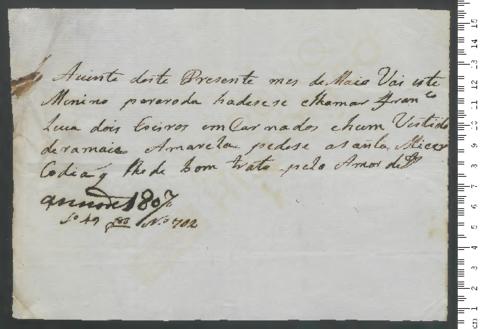 Avinte deste Prezente mes de Maio Vai este
Menino pararoda hadesese chamar Fran.co
Leva dois Coeiros emCarnados ehum Vestido
deramaie Amarela pedese aSanta Mizer
Codia q lhe de bom trato pelo Amor de Ds
annode 1807
N.o 702